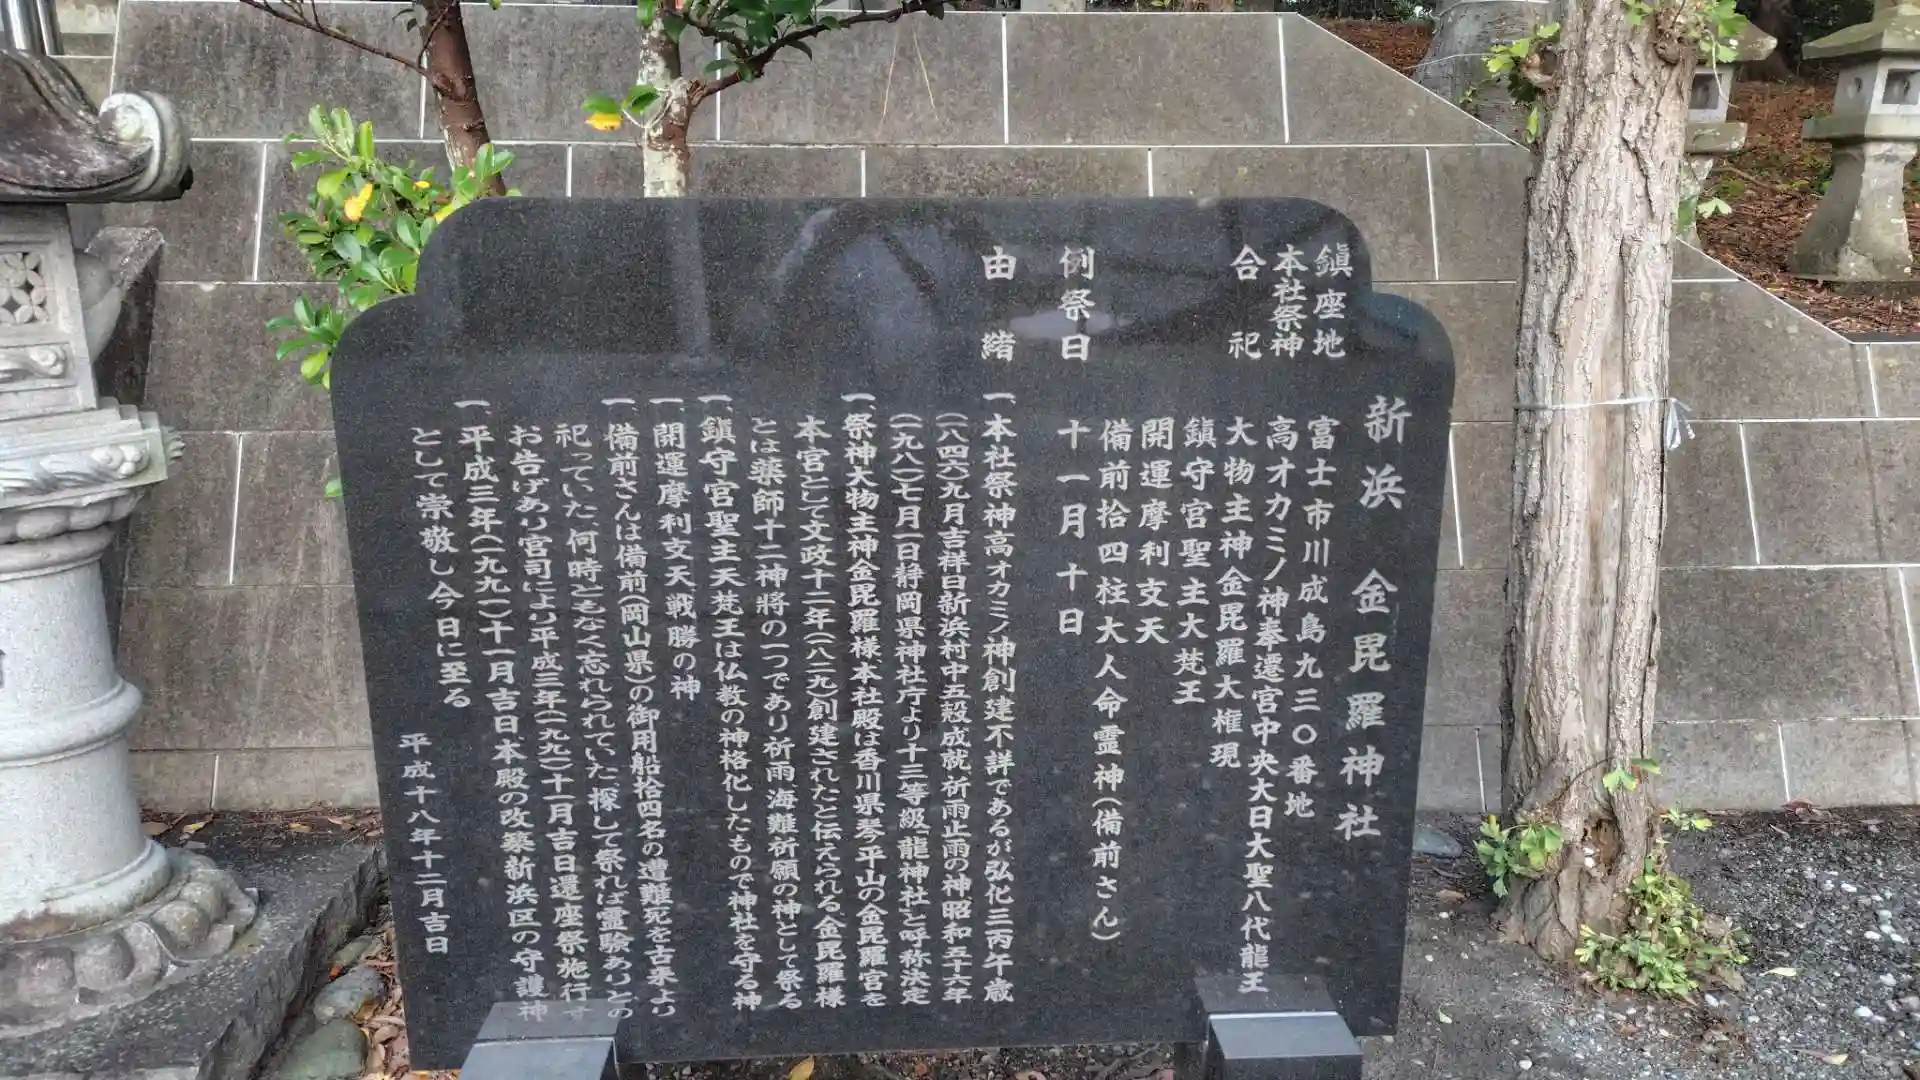 新浜 金毘羅神社
鎮座地 富士市川成島九三〇番地
本社祭神 高オカミノ神奉遷宮中央大日大聖八代龍王
合祀 大物主神金毘羅大権現
鎮守宮聖主大梵王
開運摩利支天
備前拾四柱大人命霊神(備前さん)
例祭日 十一月十日
由緒 一、本社祭神高オカミノ神創建不詳であるが、弘化三丙午歳
(一八四六)九月吉祥日新浜村中五穀成就、祈雨止雨の神昭和五十六年
(一九八一)七月一日静岡県神社庁より十三等級、龍神社と呼称決定
一、祭神大物主神金毘羅様、本社殿は香川県琴平山の金毘羅宮を
本宮として文政十二年(一八二九)創建されたと伝えられる、金毘羅様
とは薬師十二神将の一つであり祈雨、海難祈願の神として祭る
一、鎮守宮聖主天梵王は仏教の神格化したもので神社を守る神
一、開運摩利支天、戦勝の神
一、備前さんは備前(岡山県)の御用船拾四名の遭難死を古来より
祀っていた、何時ともなく忘れられていた、探して祭れば霊験ありとの
お告げあり宮司により平成三年(一九九一)十一月吉日還座祭施行せ
一、平成三年(一九九一)十一月吉日、本殿の改築新浜区の守護神
として崇敬し今日に至る
平成十八年十二月吉日